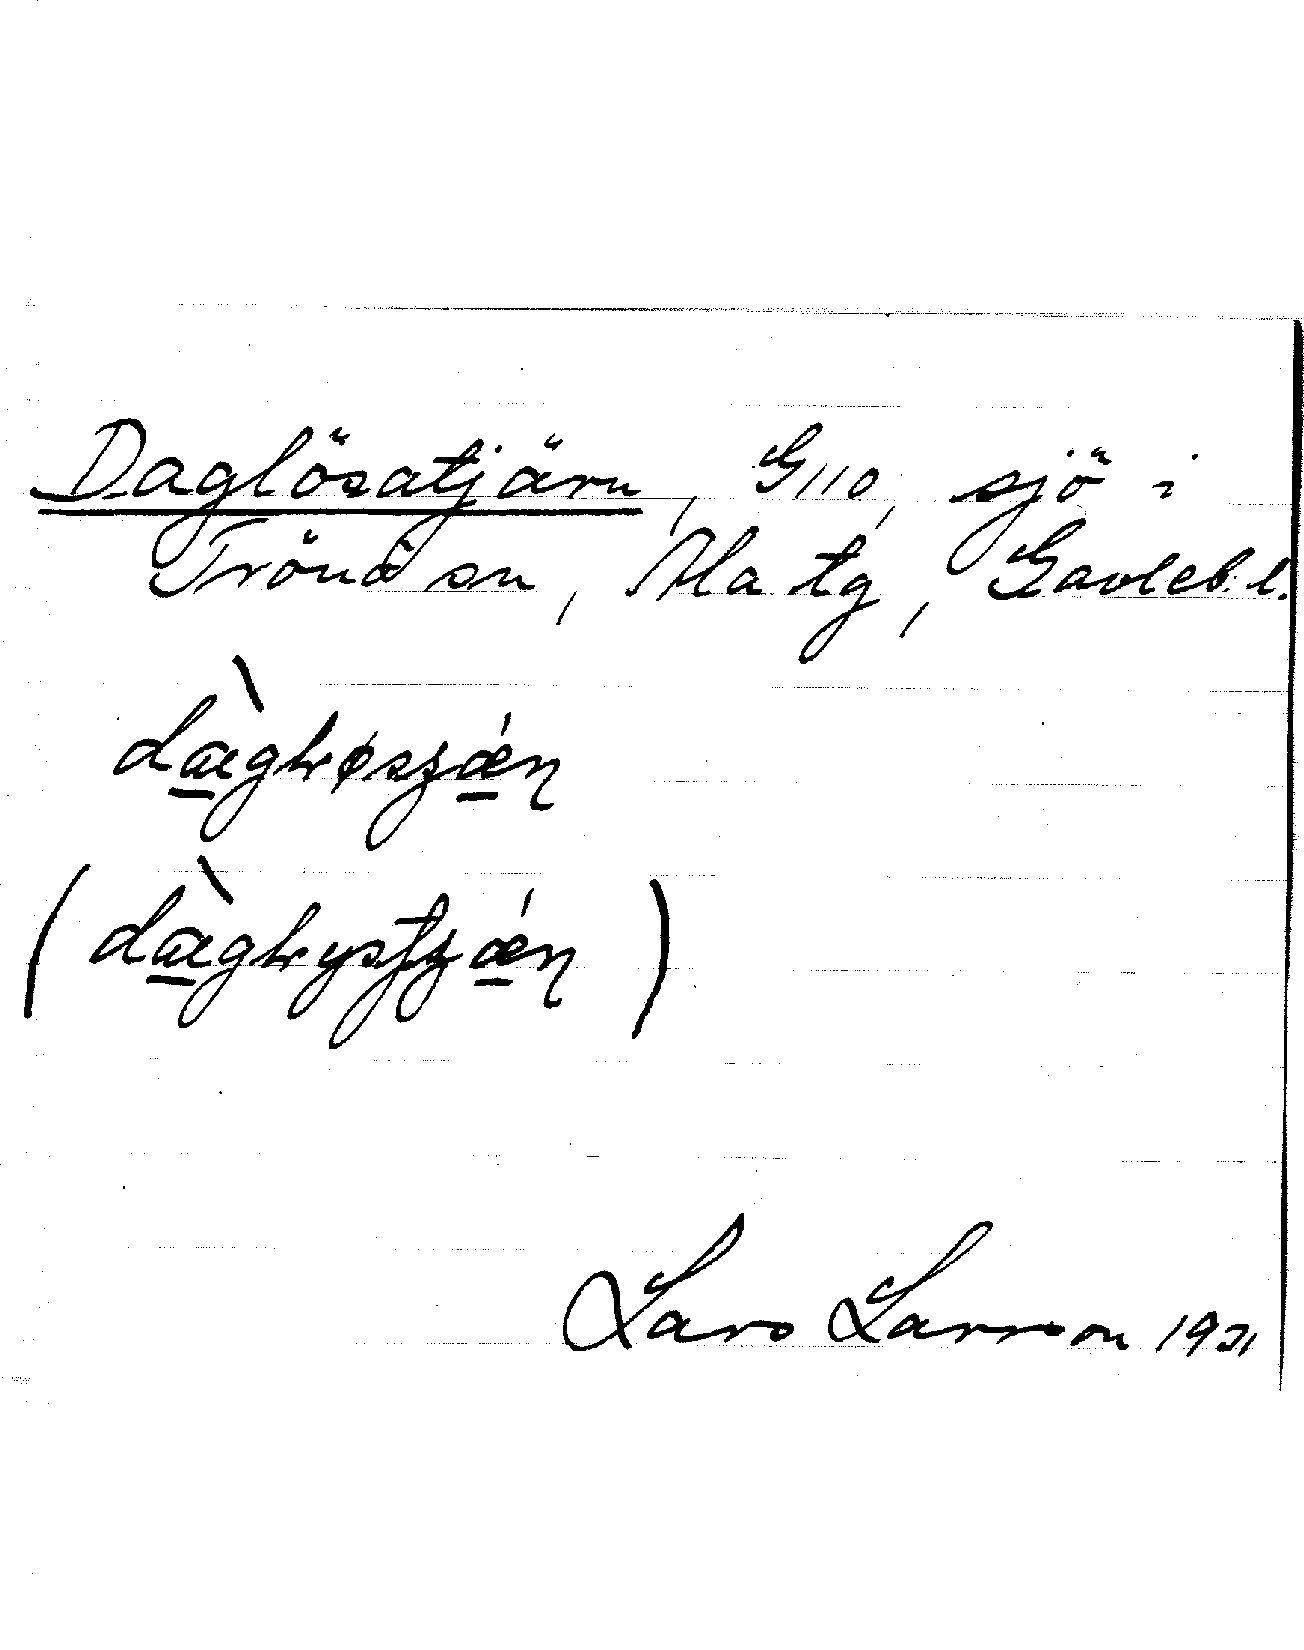 Daglösatjärn, G110, sjö i
Trönö sn, Ala tg, Gävleb. l.
dæ̀gløsʒǽṇ
(dæ̀glysʈʒǽṇ)
Lars Larsson 1931